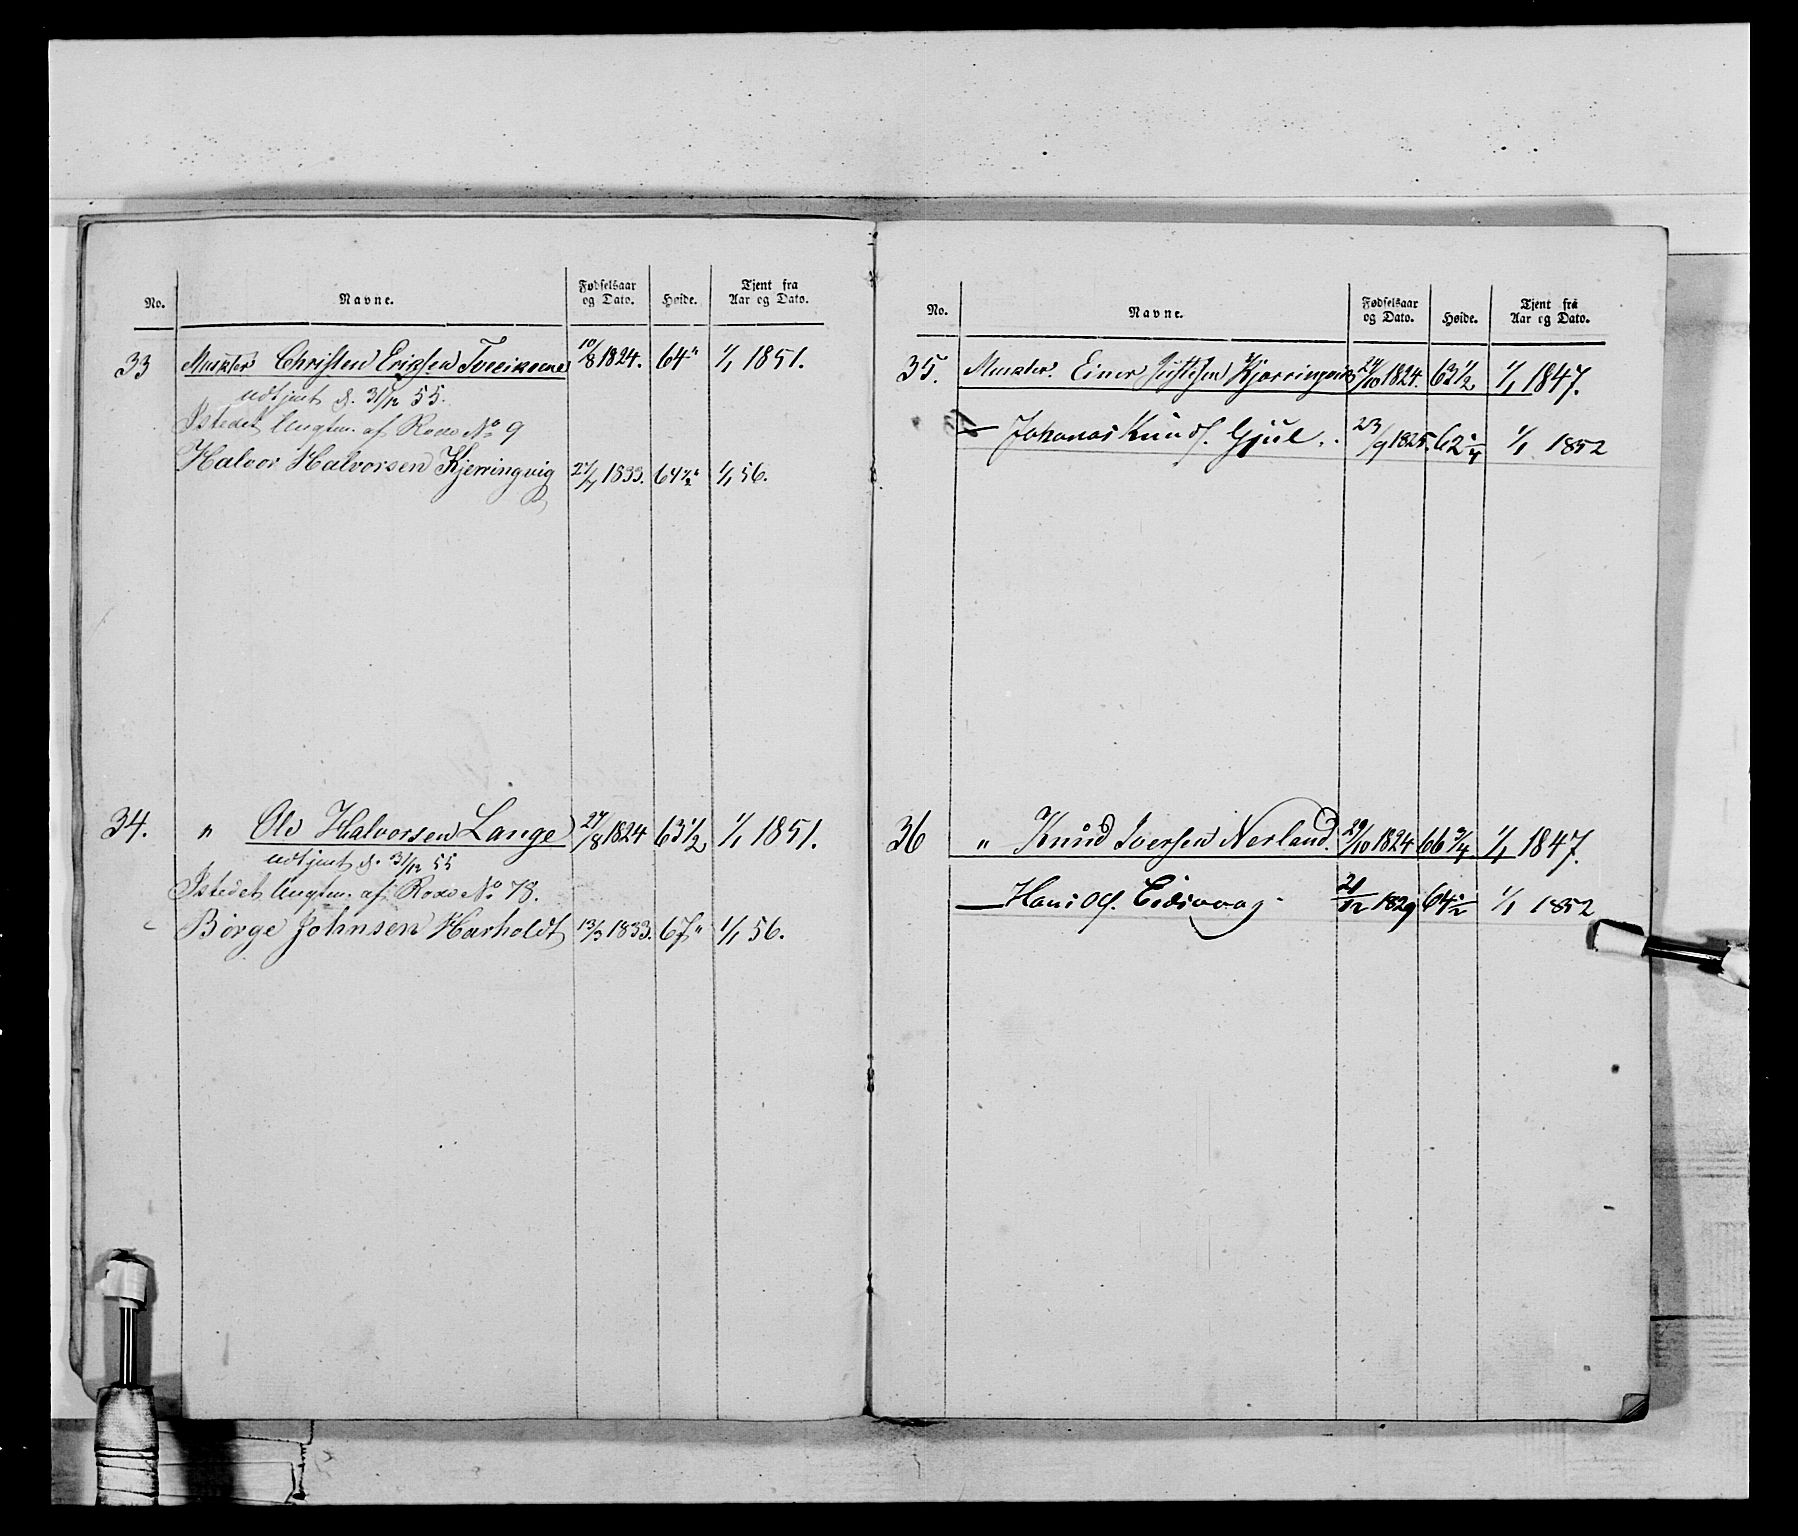 No. Navne. Fødselsaar og Dato. Høide. Tjent fra Aar og Dato.
33 Muskter Christen Eriksen 10/8 1824. 64" 1/1 1851.
udtjent d. 31/12 55.
Istedet Ungtm. af Rode No 9
Halvor Halvorsen Kjerringvig 1833. 64 1/2" 1/1 56.
34. " Ole Halvorsen Lange 27/8 1824 63 1/2 1/1 1851.
udtjent d. 31/12 55
Istedet Ungtm. af Rode No 78.
Börge Johnsen Harholdt 13/3 1833. 67" 1/1 56.
No. Navne. Fødselsaar og Dato. Høide. Tjent fra Aar og Dato.
35. Muskter. Einer Kjerringvik 24/10 1824. 63 1/2 1/1 1847.
— Johanas Knuds. Gjul. 23/9 1825. 62 1/4 1/1 1852
36 " Knud Iversen Nerland. 29/10 1824 66 3/4 1/1 1847.
— Hans Ol. 21/12 1829 64 1/2 1/1 1852